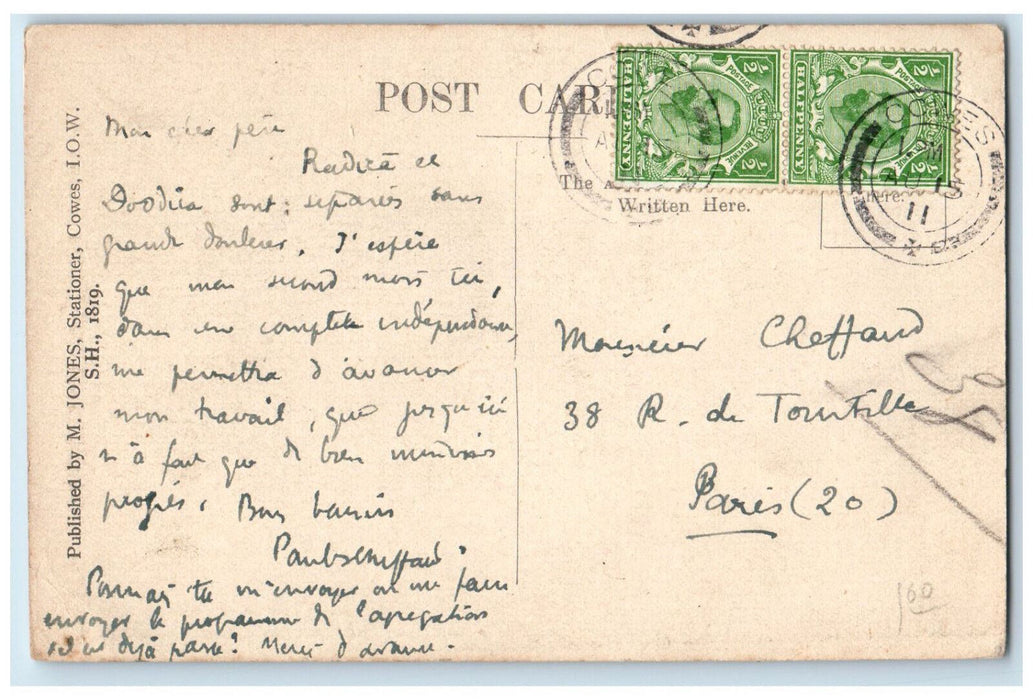 POST CAR
Published by M. JONES, Stationer, Cowes, I.O.W.
S.H., 1819.
½ ½
HALFPENNY
POSTAGE REVENUE
½ ½
HALFPENNY
POSTAGE REVENUE
COWES
AU 15
11
The A
Written Here.
here.
Mon cher père
Radica et
Doodica sont séparées sans
grande douleur. J'espère
que mon second mois ici,
dans une complète indépendance,
me permettra d'avancer
mon travail, qui jusqu'ici
n'a fait que de bien minimes
progrès. Bons baisers
Paul Cheffaud.
Pourrais tu m'envoyer ou me faire
envoyer le programme de l'agrégation
s'il est déjà paru? Merci d'avance.
Monsieur Cheffaud
38 R. de Tourtille
Paris (20)
38